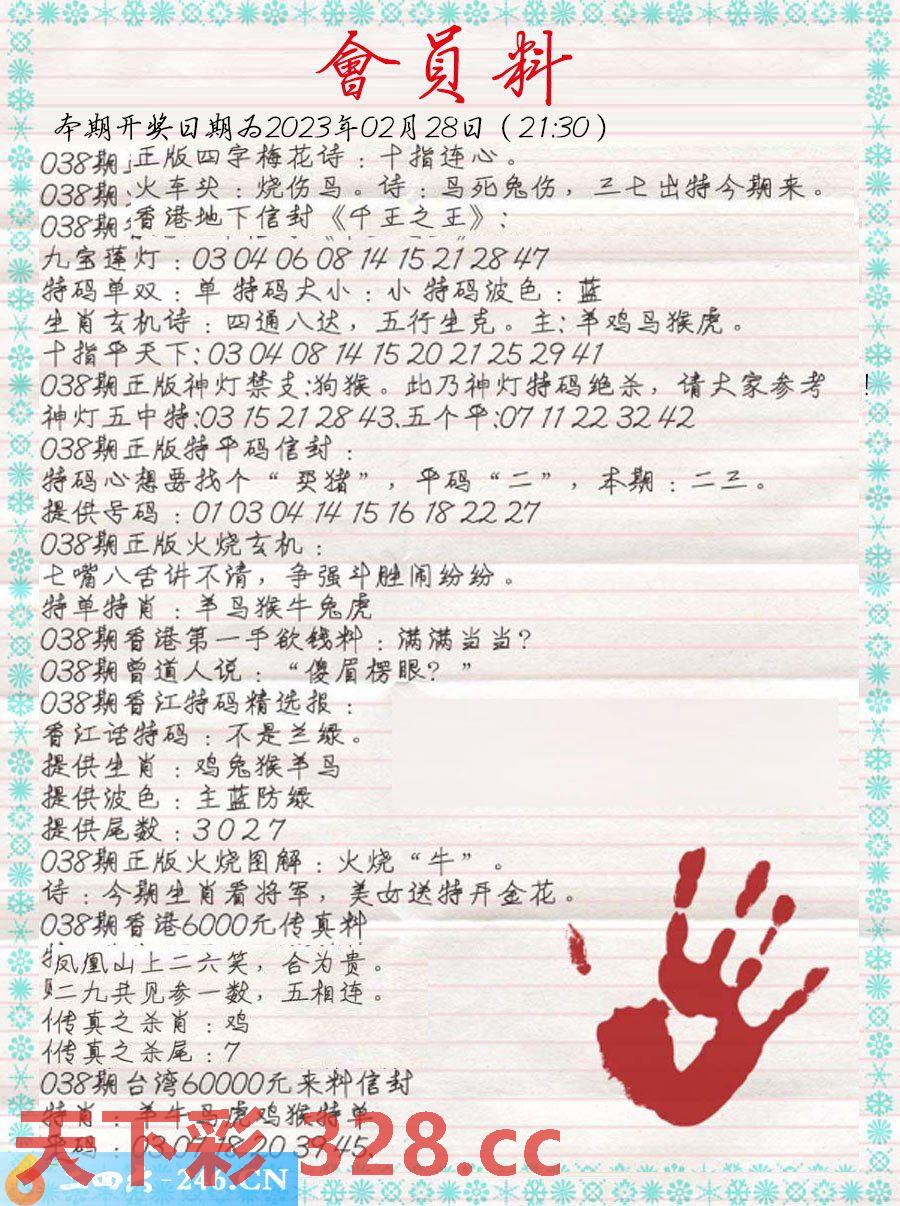 會員料
本期开奖日期为2023年02月28日（21:30）
038期 正版四字梅花诗：十指连心。
038期 火车头：烧伤鸟。诗：马死兔伤，三七出特今期来。
038期 香港地下信封《千王之王》：
九宝莲灯：03 04 06 08 14 15 21 28 47
特码单双：单 特码大小：小 特码波色：蓝
生肖玄机诗：四通八达，五行生克。主:羊鸡马猴虎。
十指平天下:03 04 08 14 15 20 21 25 29 41
038期正版神灯禁支:狗猴。此乃神灯特码绝杀，请大家参考！
神灯五中特:03 15 21 28 43.五个平:07 11 22 32 42
038期正版特平码信封：
特码心想要找个“买猪”，平码“二”，本期：二三。
提供号码：01 03 04 14 15 16 18 22 27
038期正版火烧玄机：
七嘴八舌讲不清，争强斗胜闹纷纷。
特单特肖：羊马猴牛兔虎
038期香港第一手欲钱料：满满当当？
038期曾道人说：“傻眉楞眼？”
038期香江特码精选报：
香江话特码：不是兰绿。
提供生肖：鸡兔猴羊马
提供波色：主蓝防绿
提供尾数：3 0 2 7
038期正版火烧图解：火烧“牛”。
诗：今期生肖看将军，美女送特开金花。
038期香港6000元传真料
凤凰山上二六笑，合为贵。
二九共见参一数，五相连。
传真之杀肖：鸡
传真之杀尾：7
038期台湾60000元来料信封
特肖：羊牛马虎鸡猴特单
码：03 07 18 20 39 45.
天下彩 328.cc
二四六-246.CN